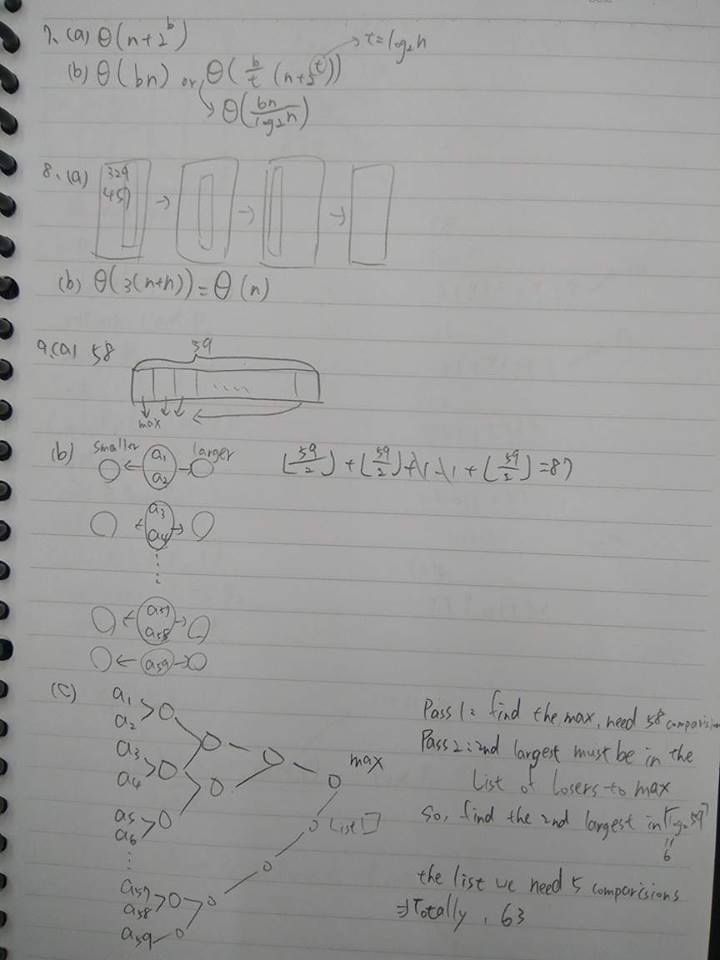 7. (a) Θ(n+2^b)
(b) Θ(bn) or Θ(b/t (n+2^t)) → t=log₂n
→ Θ(bn/log₂n)
8. (a) 329
457
→ → →
(b) Θ(3(n+n)) = Θ(n)
9. (a) 58
59
....
max
(b) smaller a1 larger
a2
⌊59/2⌋+⌊59/2⌋+ +⌊59/2⌋=87
a3
a4
a57
a58
a59
(c) a1
a2
a3
a4
a5
a6
a57
a58
a59
max
List
Pass 1: find the max, need 58 comparision
Pass 2: 2nd largest must be in the
List of losers to max
So, find the 2nd largest in ⌈log₂59⌉
=
6
the list we need 5 comparisions
⇒ Totally, 63